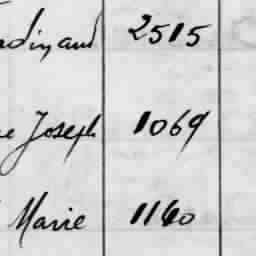 dinand 2515
Joseph 1069
Marie 1140